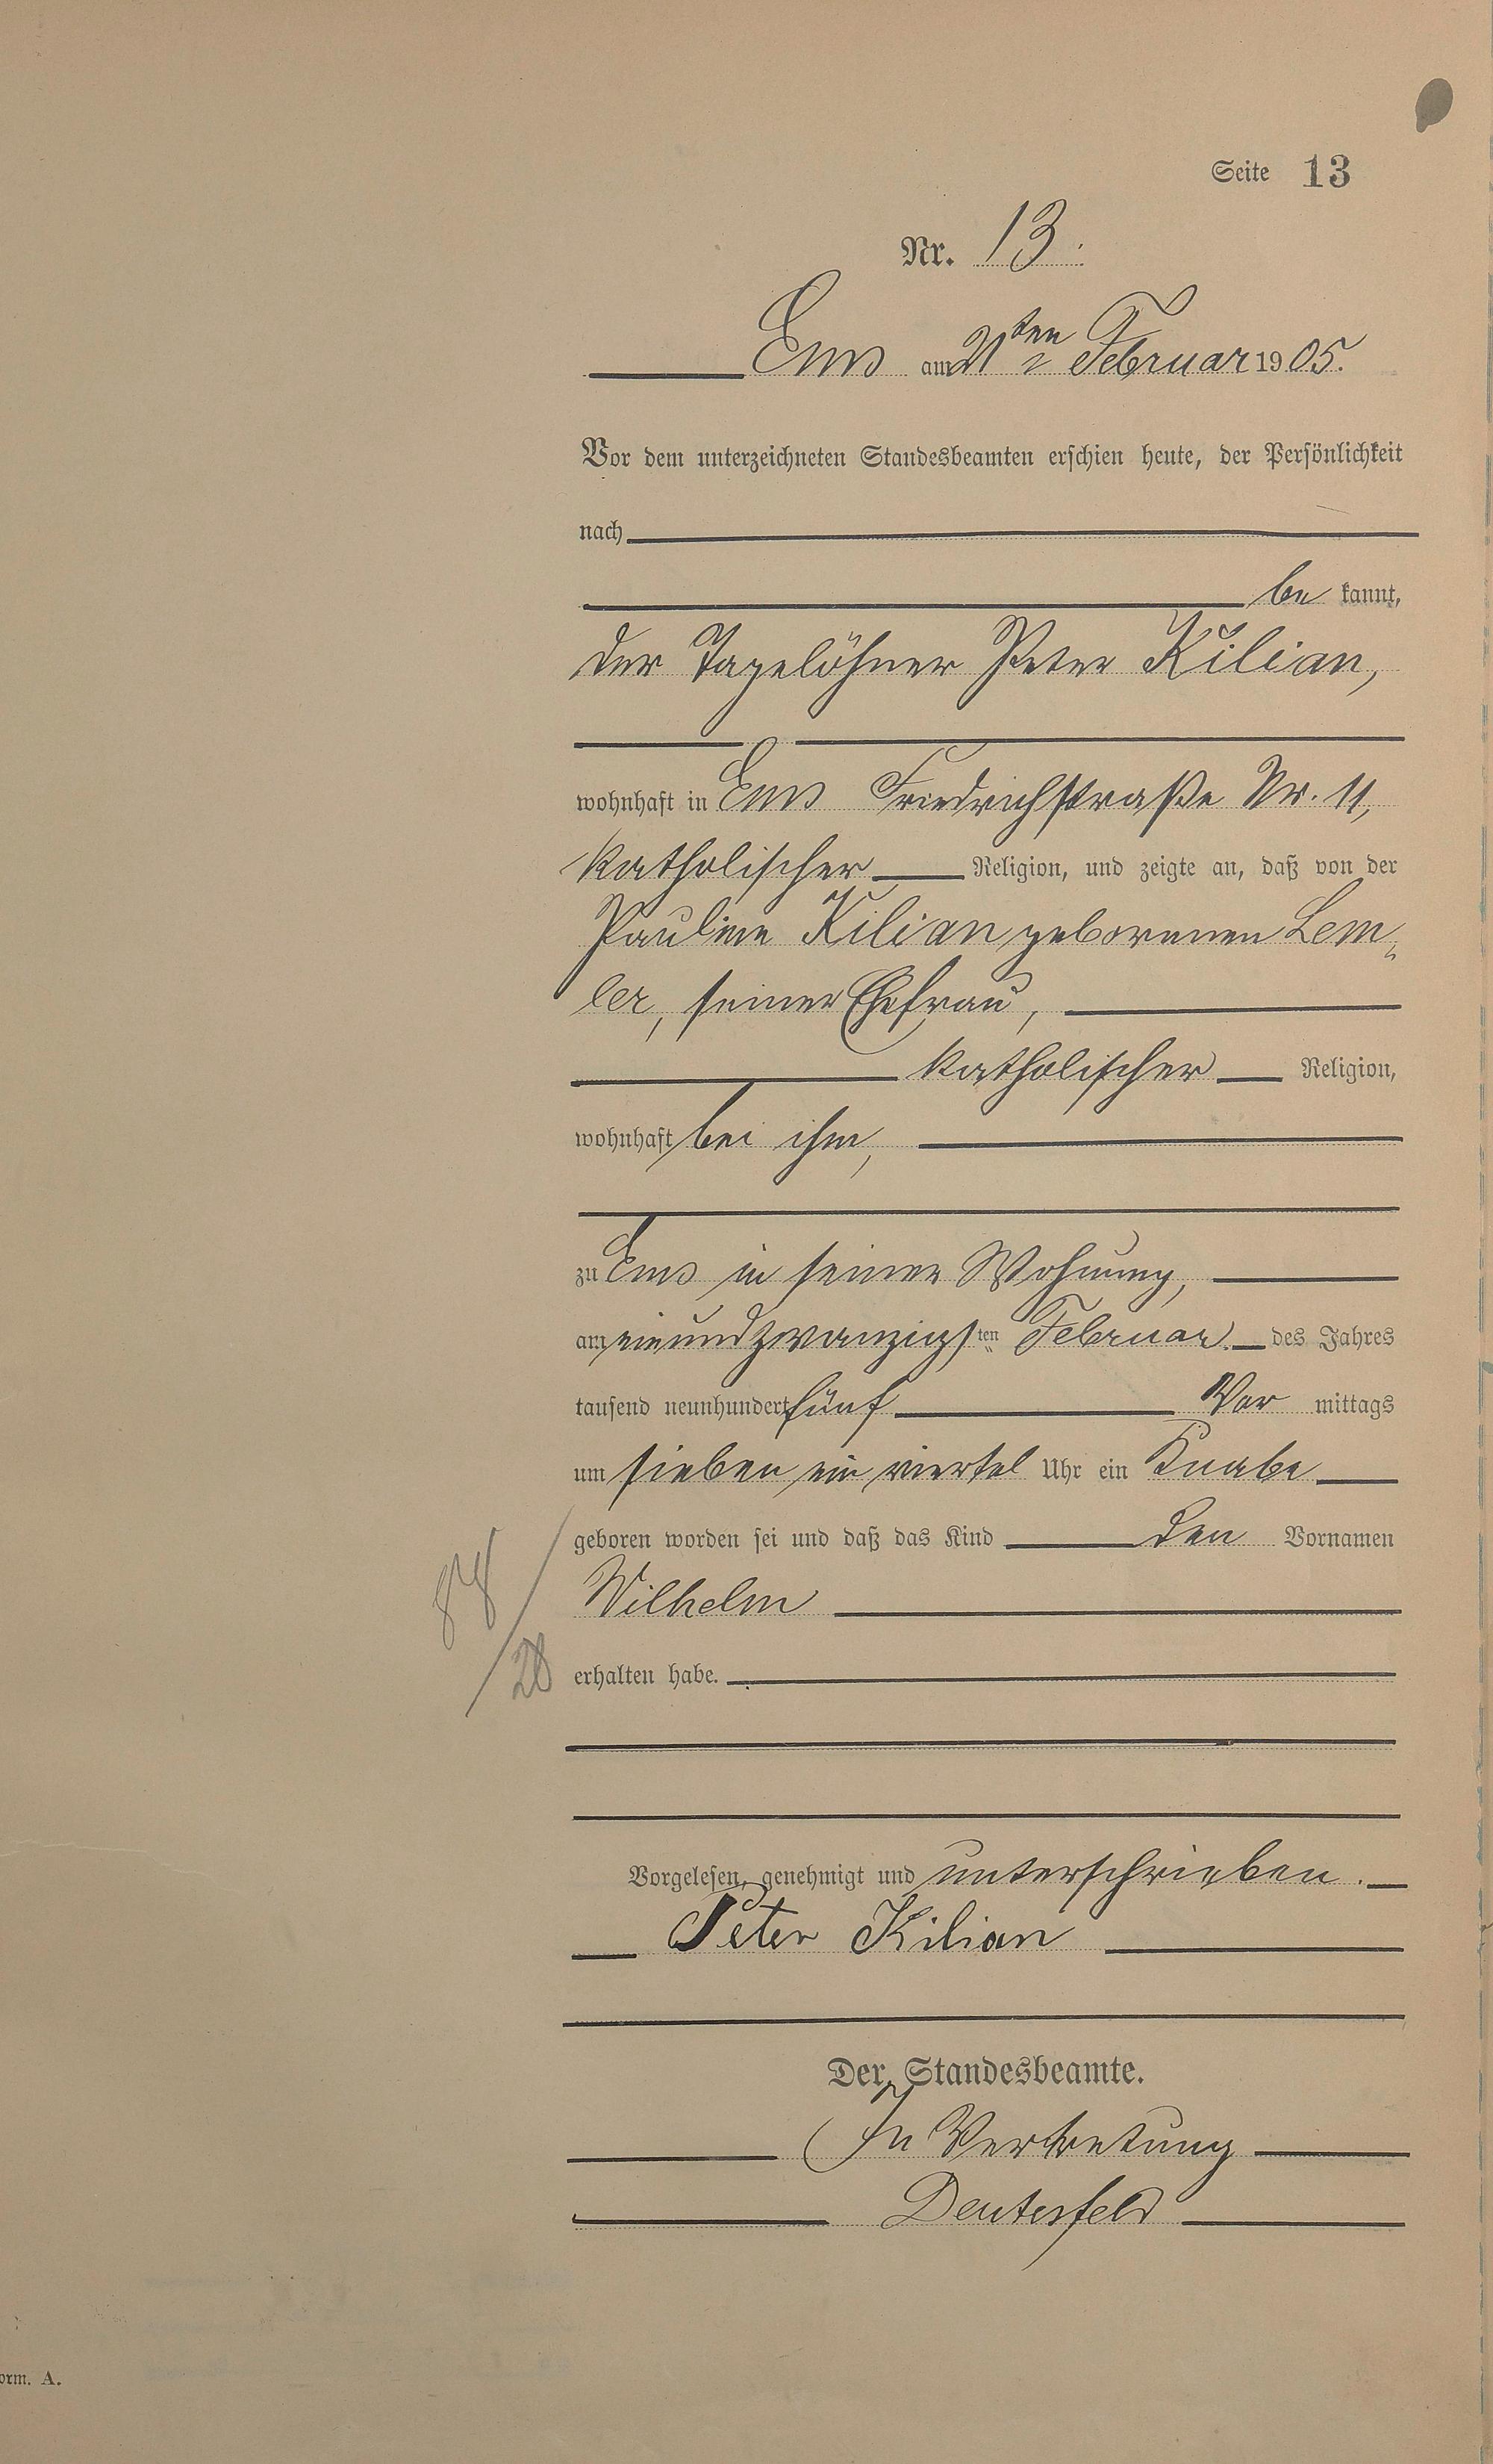 Seite 13
Nr. 13.
Ems am 21ten Februar 1905.
Vor dem unterzeichneten Standesbeamten erschien heute, der Persönlichkeit
nach
be kannt,
der Tagelöhner Peter Kilian,
wohnhaft in Ems Friedrichstraße Nr. 11,
katholischer Religion, und zeigte an, daß von der
Pauline Kilian geborenen Lem-
ler, seiner Ehefrau,
katholischer Religion,
wohnhaft bei ihm,
zu Ems in seiner Wohnung,
am einundzwanzigsten Februar des Jahres
tausend neunhundert fünf Vor mittags
um sieben ein viertel Uhr ein Knabe
geboren worden sei und daß das Kind den Vornamen
Wilhelm
erhalten habe.
Vorgelesen, genehmigt und unterschrieben.
Peter Kilian
Der Standesbeamte.
In Vertretung
Deutesfeld
orm. A.